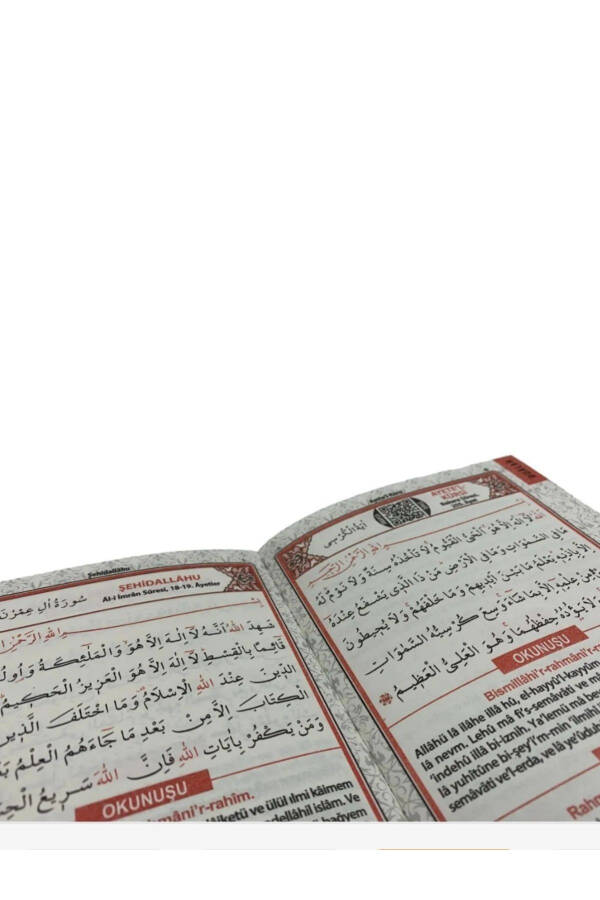 Şehidallâhu
ŞEHİDALLÂHU
Al-i İmrân Sûresi, 18-19. Âyetler
شَهِدَ اللّٰهُ اَنَّهُ لَٓا اِلٰهَ اِلَّا هُوَ وَالْمَلٰٓئِكَةُ وَاُولُوا
قَٓائِمًا بِالْقِسْطِ لَٓا اِلٰهَ اِلَّا هُوَ الْعَزِيزُ الْحَكِيمُ
الدِّينَ عِنْدَ اللّٰهِ الْاِسْلَامُ وَمَا اخْتَلَفَ الَّذِينَ
الْكِتَابَ اِلَّا مِنْ بَعْدِ مَا جَٓاءَهُمُ الْعِلْمُ
وَمَنْ يَكْفُرْ بِاٰيَاتِ اللّٰهِ فَاِنَّ اللّٰهَ سَرِيعُ
OKUNUŞU
ilmi kâimem
islâm. Ve
AYETE'L
KÜRSİ
اٰيَةُ الْكُرْسِى
اَللّٰهُ لَٓا اِلٰهَ اِلَّا هُوَ اَلْحَىُّ الْقَيُّومُ لَا تَأْخُذُهُ سِنَةٌ وَلَا نَوْمٌ لَهُ
مَا فِى السَّمٰوَاتِ وَمَا فِى الْاَرْضِ مَنْ ذَا الَّذِى يَشْفَعُ عِنْدَهُ
اِلَّا بِاِذْنِهِ يَعْلَمُ مَا بَيْنَ اَيْدِيهِمْ وَمَا خَلْفَهُمْ وَلَا يُحِيطُونَ
مِنْ عِلْمِهِ اِلَّا بِمَا شَٓاءَ وَسِعَ كُرْسِيُّهُ السَّمٰوَاتِ
وَلَا يَؤُدُهُ حِفْظُهُمَا وَهُوَ الْعَلِىُّ الْعَظِيمُ
OKUNUŞU
Bismillâhi'r-rahmâni'r-
Allâhü lâ ilâhe illâ hû, el-hayyü'l-kayyûm
lâ nevm. Lehû mâ fi's-semâvâti ve
'indehû illâ bi-iznih. Ya'lemü mâ
lâ yuhîtûne bi-şey'i'm-min 'ilmihî
semâvâti ve'l-erda, ve lâ